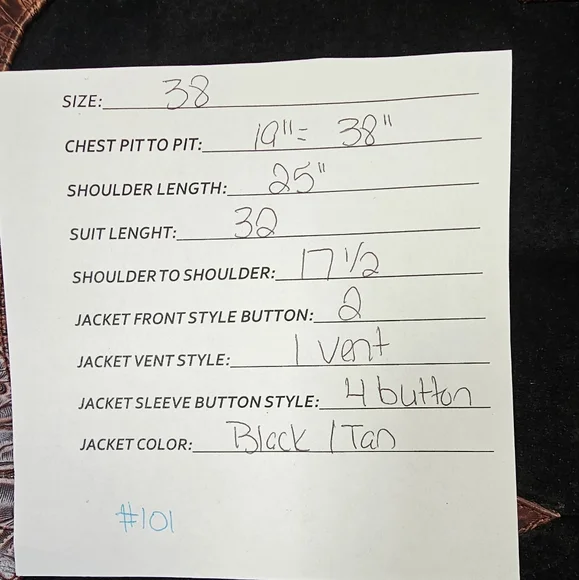 SIZE: 38
CHEST PIT TO PIT: 19"= 38"
SHOULDER LENGTH: 25"
SUIT LENGHT: 32
SHOULDER TO SHOULDER: 17 1/2
JACKET FRONT STYLE BUTTON: 2
JACKET VENT STYLE: 1 vent
JACKET SLEEVE BUTTON STYLE: 4 button
JACKET COLOR: Black / Tan
#101